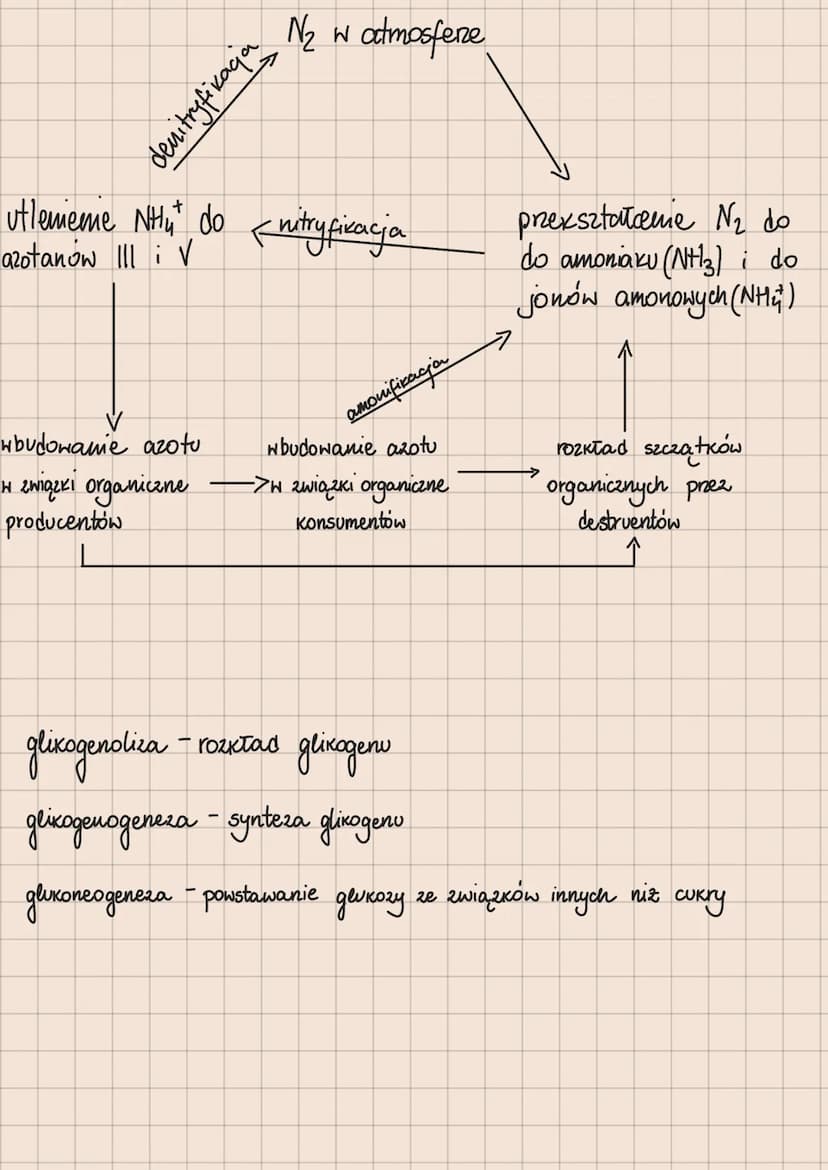 N₂ w atmosferze
denitryfikacja
utlenienie NH₄⁺ do
azotanów III i V
nitryfikacja
przekształcenie N₂ do
do amoniaku (NH₃) i do
jonów amonowych (NH₄⁺)
amonifikacja
wbudowanie azotu
w związki organiczne
producentów
wbudowanie azotu
w związki organiczne
konsumentów
rozkład szczątków
organicznych przez
destruentów
glikogenoliza - rozkład glikogenu
glikogenogeneza - synteza glikogenu
glukoneogeneza - powstawanie glukozy ze związków innych niż cukry